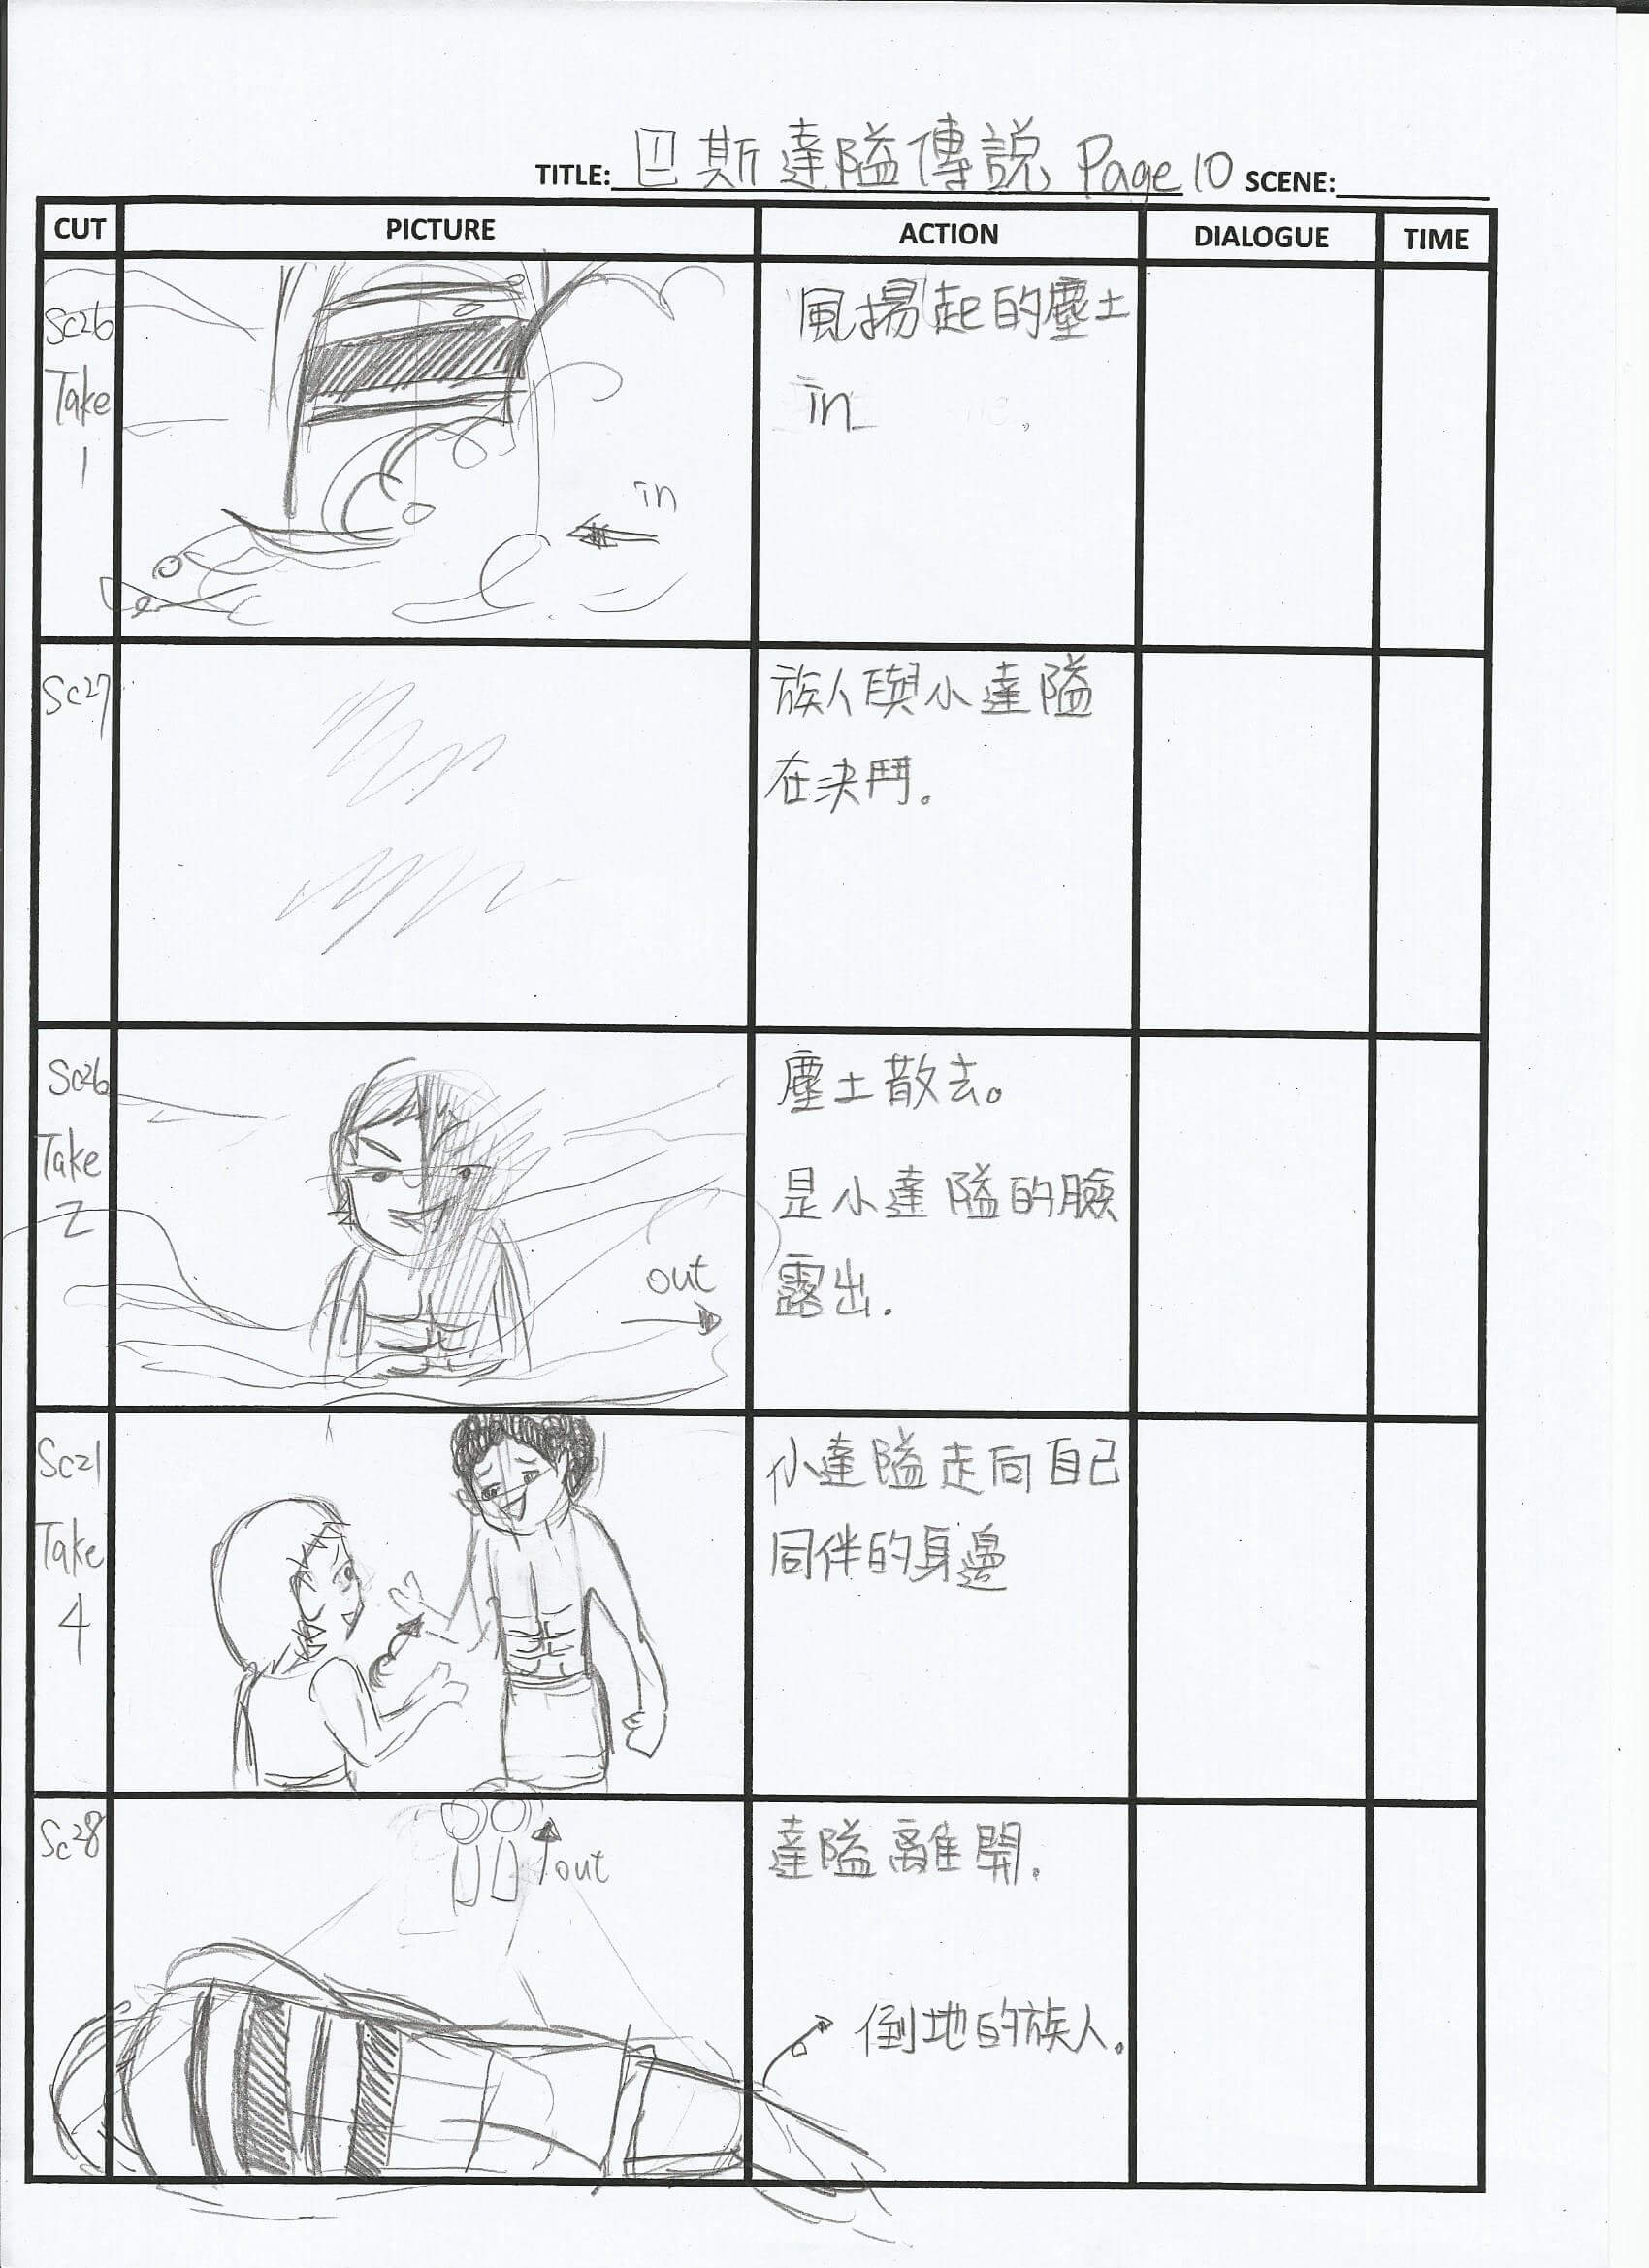 TITLE: 巴斯達隘傳說 Page 10 SCENE:
CUT PICTURE ACTION DIALOGUE TIME
Sc26
Take
1
in
風揚起的塵土
in
Sc27
族人與小達隘
在決鬥。
Sc26
Take
2
out
塵土散去。
是小達隘的臉
露出.
Sc21
Take
4
小達隘走向自己
同伴的身邊
Sc28
out
達隘離開.
倒地的族人.